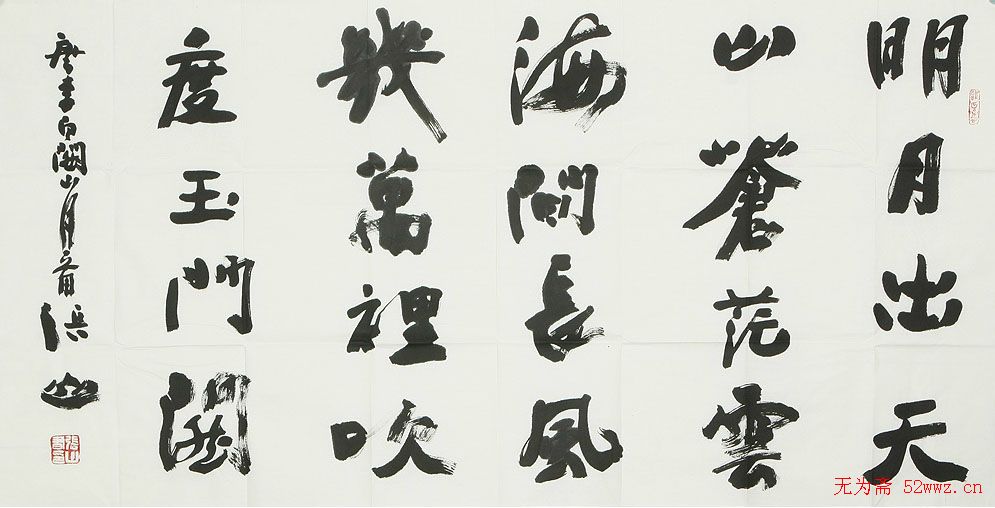 明月出天
山蒼茫雲
海間長風
幾萬裡吹
度玉門關
唐李白關山月首 浜山
无为斋 52wwz.cn